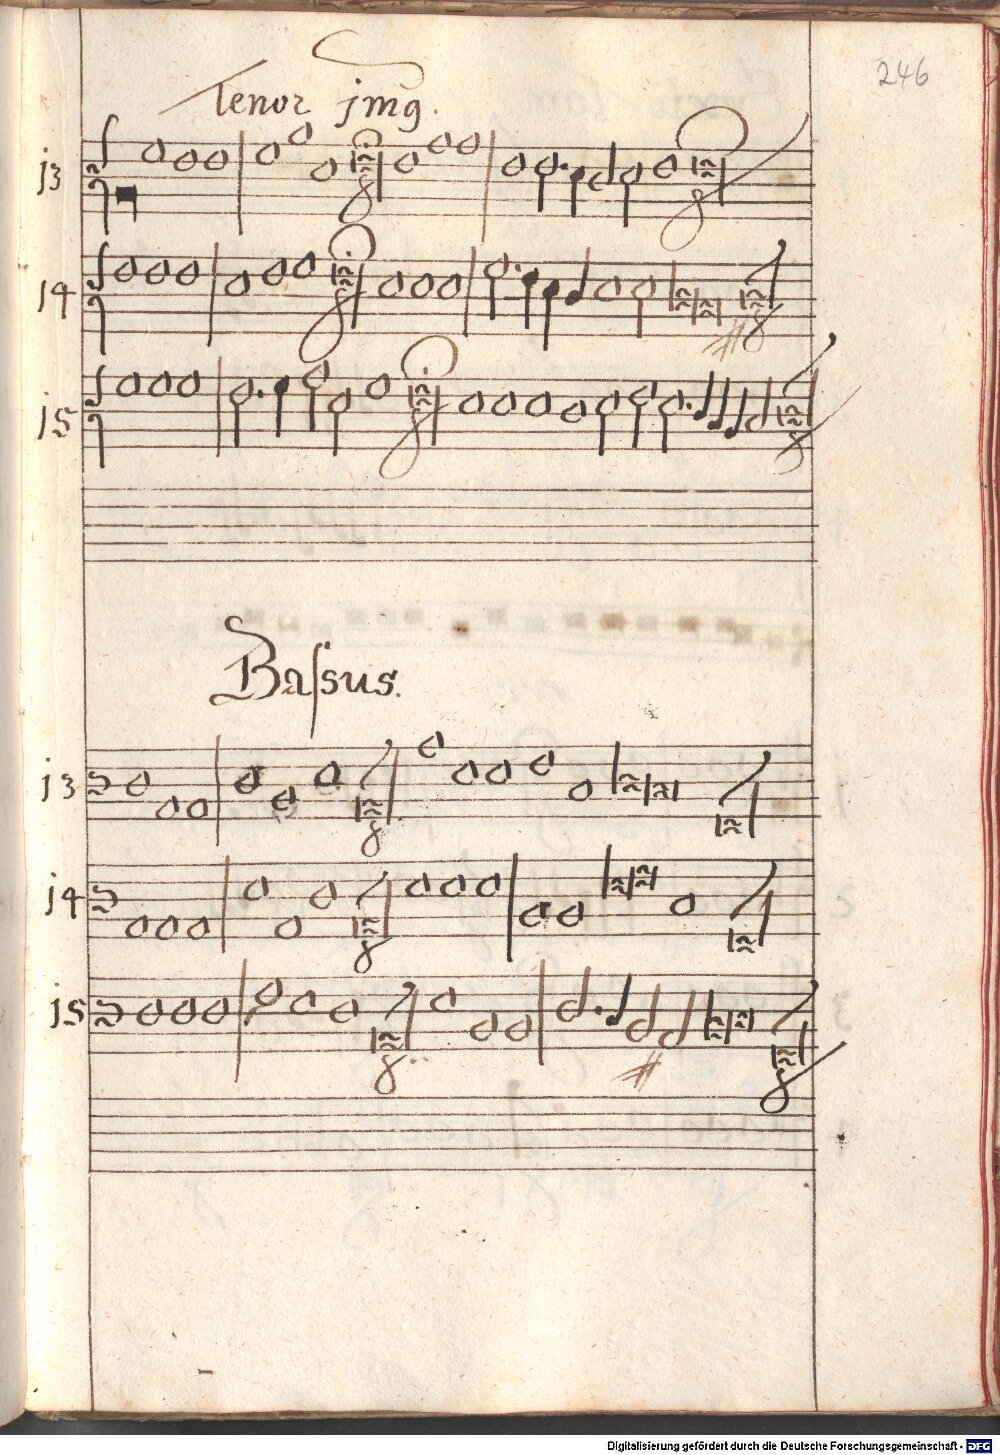 246
Tenor jmg.
j3
j4
j5
Baſsus.
j3
j4
j5
Digitalisierung gefördert durch die Deutsche Forschungsgemeinschaft - DFG